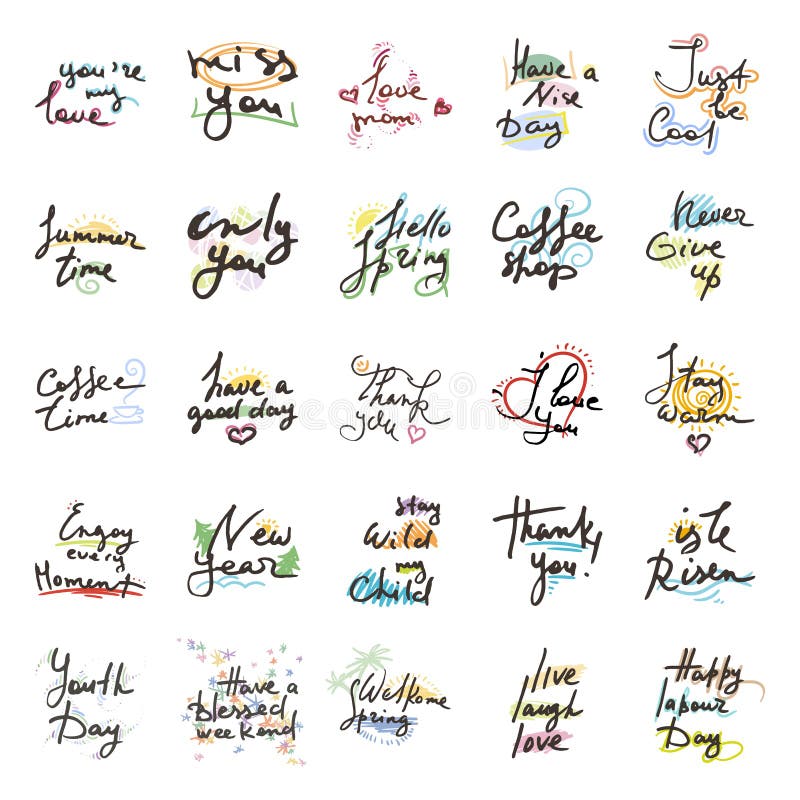 you're
my
love
miss
you
love
mom
Have a
Nise
Day
Just
be
Cool
Summer
time
only
you
Hello
Spring
Coffee
shop
Never
Give
up
Coffee
time
have a
good day
Thank
you
I love
you
Stay
warm
Enjoy
every
Moment
New
Year
stay
Wild
my
Child
Thank
you!
is le
Risen
Youth
Day
Have a
blessed
weekend
Wellkome
Spring
live
laugh
love
Happy
labour
Day